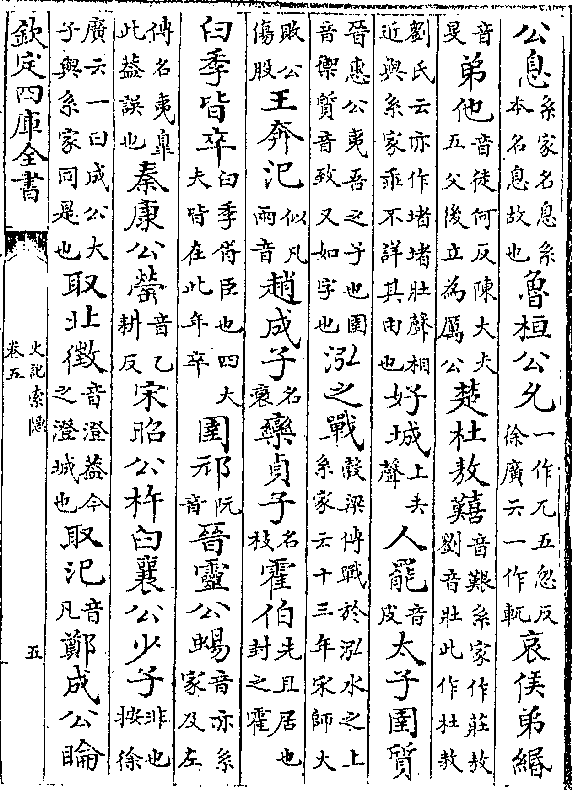 公息系家名息系本名息故也魯桓公允一作兀五忽反徐廣云一作軏哀侯弟緡
音旻弟他音徒何反陳大夫五父後立為厲公楚杜敖囏音艱系家作莊敖劉音壯此作杜敖
劉氏云亦作堵堵壯聲相近與系家乖不詳其由也好城上去聲人罷音皮太子圉質
晉惠公夷吾之子也圉音禦質音致又如字也泓之戰穀梁傳戰於泓水之上系家云十三年宋師大
敗公傷股王奔汜似凡兩音趙成子名衰欒貞子名枝霍伯先且居也封之霍
臼季皆卒臼季胥臣也四大夫皆在此年卒圍邧阮音晉靈公蜴音亦系家及左
傳名夷臯此葢誤也秦康公罃音乙耕反宋昭公杵臼襄公少子非也按徐
廣云一曰成公大子與系家同是也取北徵音澄葢今之澄城也取汜音凡鄭成公睔
欽定四庫全書
史記索隱
卷五
五